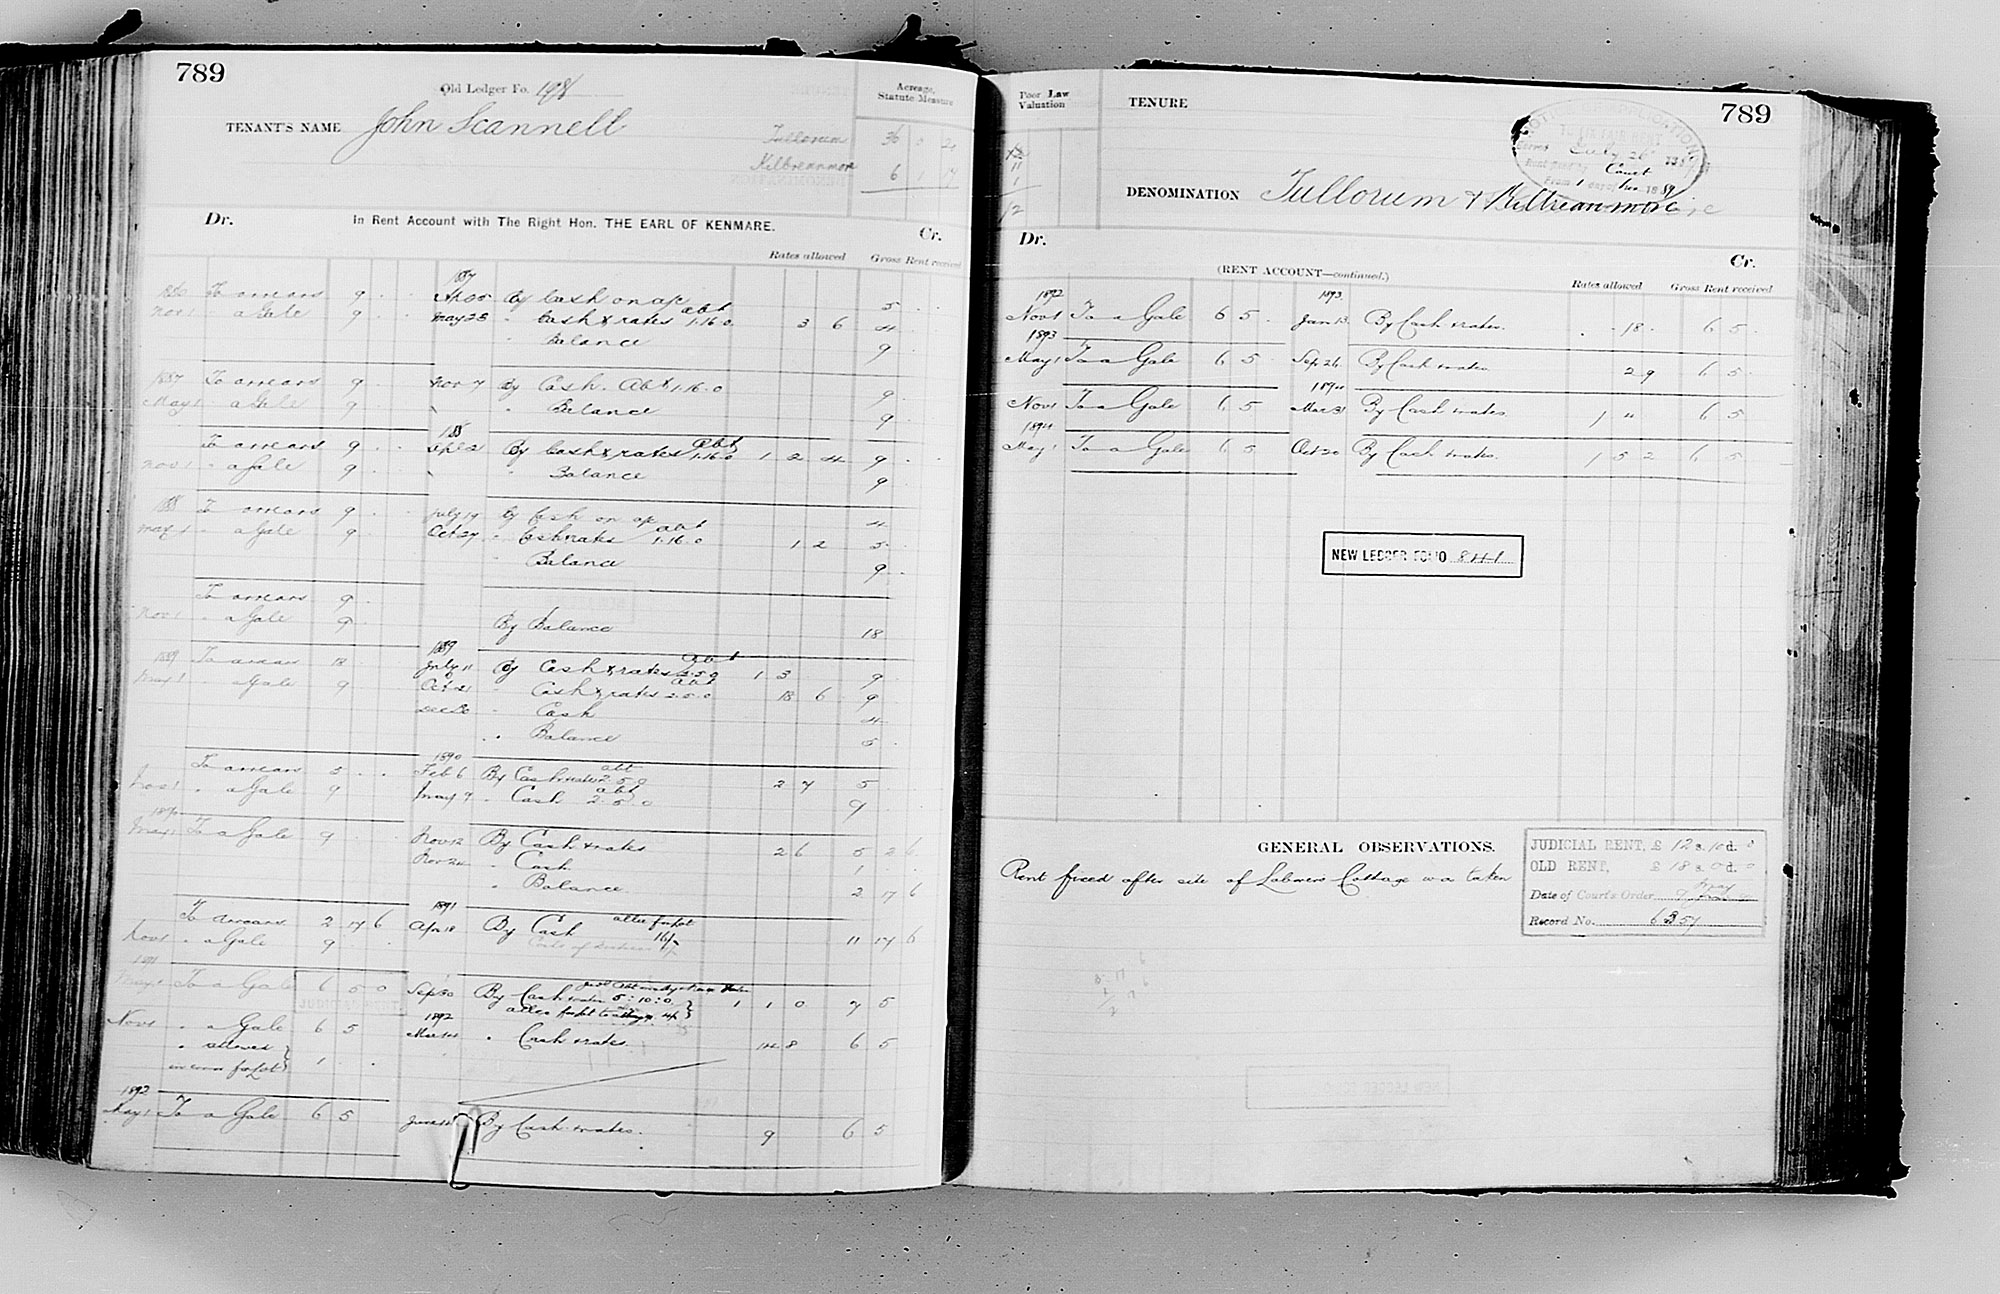 789
Old Ledger Fo. 198
Acreage, Statute Measure
TENANT'S NAME John Scannell
Tullorum 36 0 2
Kilbreanmore 6 1 17
Dr. In Rent Account with The Right Hon. THE EARL OF KENMARE. Cr.
Rates allowed Gross Rent received
1887
To arrears 9 Apr 5 By Cash on a/c 5
Nov 1 " a Gale 9 May 28 " Cash & rates abt 1.16.0 3 6 4
" Balance 9
1887 To arrears 9 Nov 7 By Cash. Abt 1.16.0 9
May 1 " a Gale 9 " Balance 9
188
To arrears 9 Sep 21 By Cash & rates abt 1.16.0 1 2 4 9
Nov 1 " a Gale 9 " Balance 9
188 To arrears 9 July 19 By Cash on a/c 4
May 1 " a Gale 9 Oct 27 " Cash & rates abt 1.16.0 1 2 5
" Balance 9
To arrears 9
Nov 1 " a Gale 9 By Balance 18
1889
1889 To arrears 18 July 11 By Cash & rates abt 2.5.0 1 3 9
May 1 " a Gale 9 Oct 21 " Cash & rates abt 2.5.0 18 6 9
Dec 30 " Cash 4
" Balance 5
1890
To arrears 5 Feb 6 By Cash & rates abt 2.5.0 2 7 5
Nov 1 " a Gale 9 May 7 " Cash abt 2.5.0 9
1890
May 1 To a Gale 9 Nov 12 By Cash & rates 2 6 5 2 6
Nov 24 " Cash 1
" Balance 2 17 6
1891
To arrears 2 17 6 Apr 18 By Cash 16/- 11 17 6
Nov 1 " a Gale 9
1891
May 1 To a Gale 6 5 0 Sep 30 By Cash & rates 5:10:0 1 1 0 7 5
JUDICIAL RENT
1892
Nov 1 " a Gale 6 5 Mar " Cash & rates 14 8 6 5
" allowed
in error 1
1892
May 1 To a Gale 6 5 June By Cash & rates. 9 6 5
Poor Law Valuation
TENURE
789
11
1
12
July 26
Court
1 day of Nov 1889
DENOMINATION Tullorum & Kilbreanmore
Dr. (RENT ACCOUNT—continued.) Cr.
Rates allowed Gross Rent received
1892 1893
Nov 1 To a Gale 6 5 Jan 13 By Cash & rates. 18 6 5
1893
May 1 To a Gale 6 5 Sep 26 By Cash & rates 2 9 6 5
1894
Nov 1 To a Gale 6 5 Mar 31 By Cash & rates 1 4 6 5
1894
May 1 To a Gale 6 5 Oct 20 By Cash & rates. 1 5 2 6 5
NEW LEDGER FOLIO 841
GENERAL OBSERVATIONS.
Rent fixed after site of Labourers Cottage was taken
JUDICIAL RENT, £ 12 s. 10 d. 0
OLD RENT, £ 18 s. 0 d. 0
Date of Court's Order 9 May
Record No. 6357